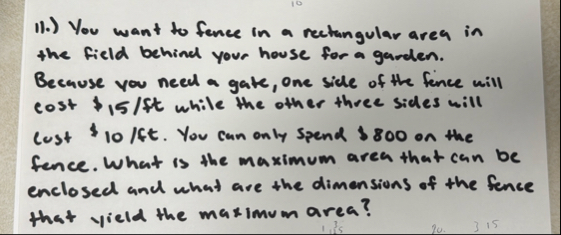 10
11.) You want to fence in a rectangular area in
the field behind your house for a garden.
Because you need a gate, one side of the fence will
cost $15/ft while the other three sides will
cost $10/ft. You can only spend $800 on the
fence. What is the maximum area that can be
enclosed and what are the dimensions of the fence
that yield the maximum area?